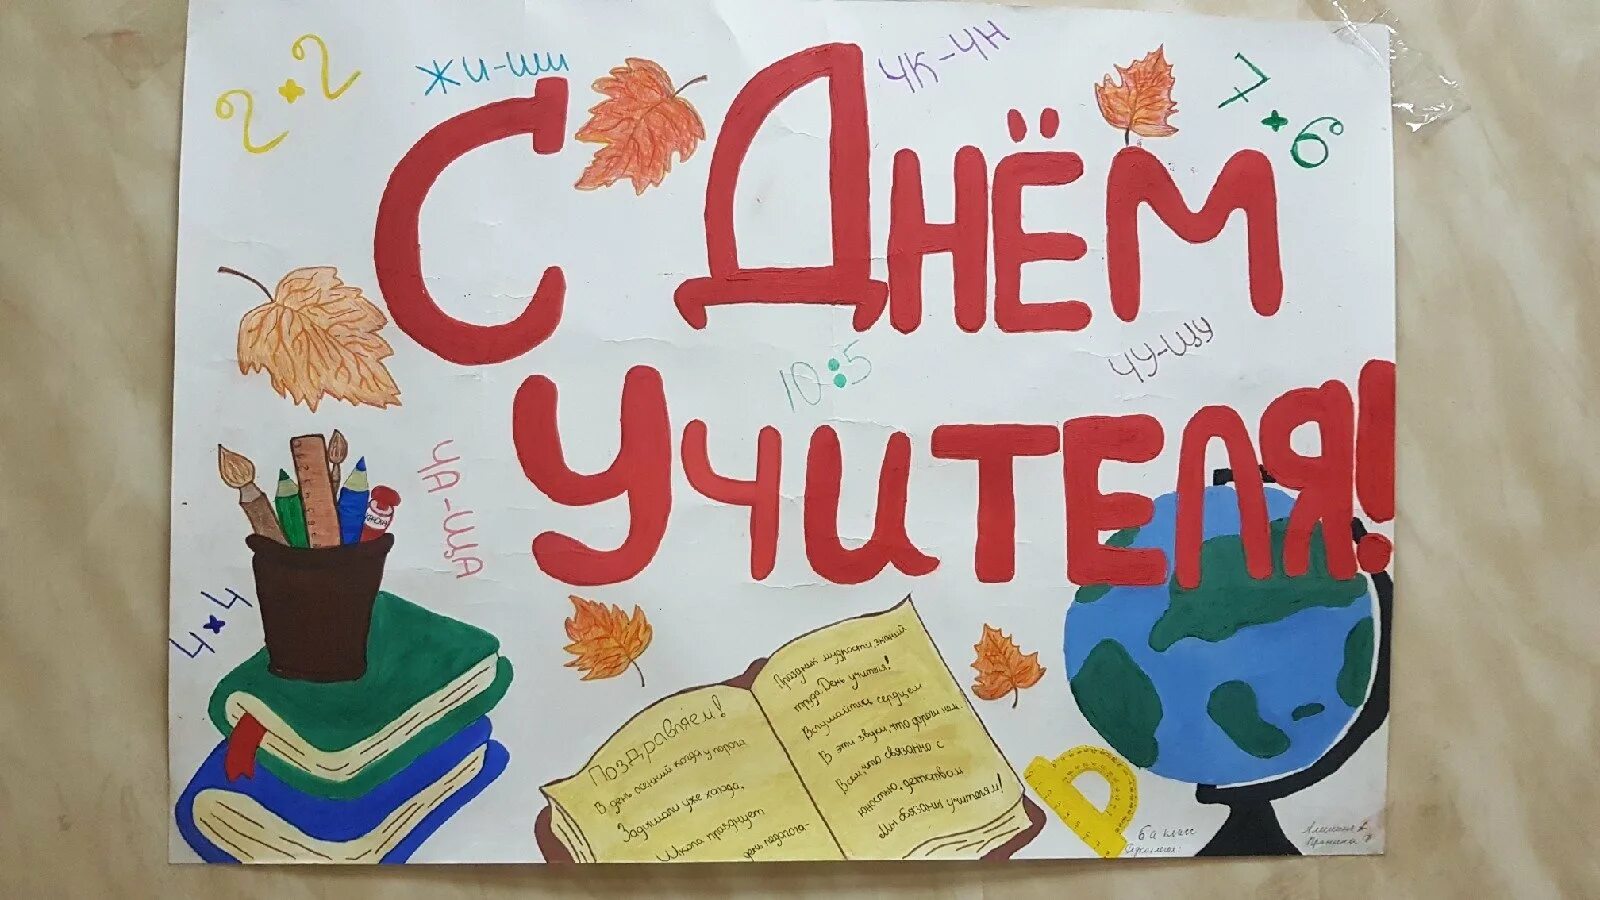 2 × 2
ЖИ-ШИ
ЧК-ЧН
7 × 6
С ДНЁМ
10:5
ЧУ-ЩУ
УЧИТЕЛЯ!
ЧА-ЩА
4 × 4
Поздравляем!
В день осенний когда у порога
Задышали уже холода,
Школа празднует
день педагога-
Праздник мудрости, знаний
труда. День учителя!
Вслушайтесь сердцем
В эти звуки, что дороги нам.
Всем, что связанно с
юностью, детством
Мы обязаны учителям!
6а класс